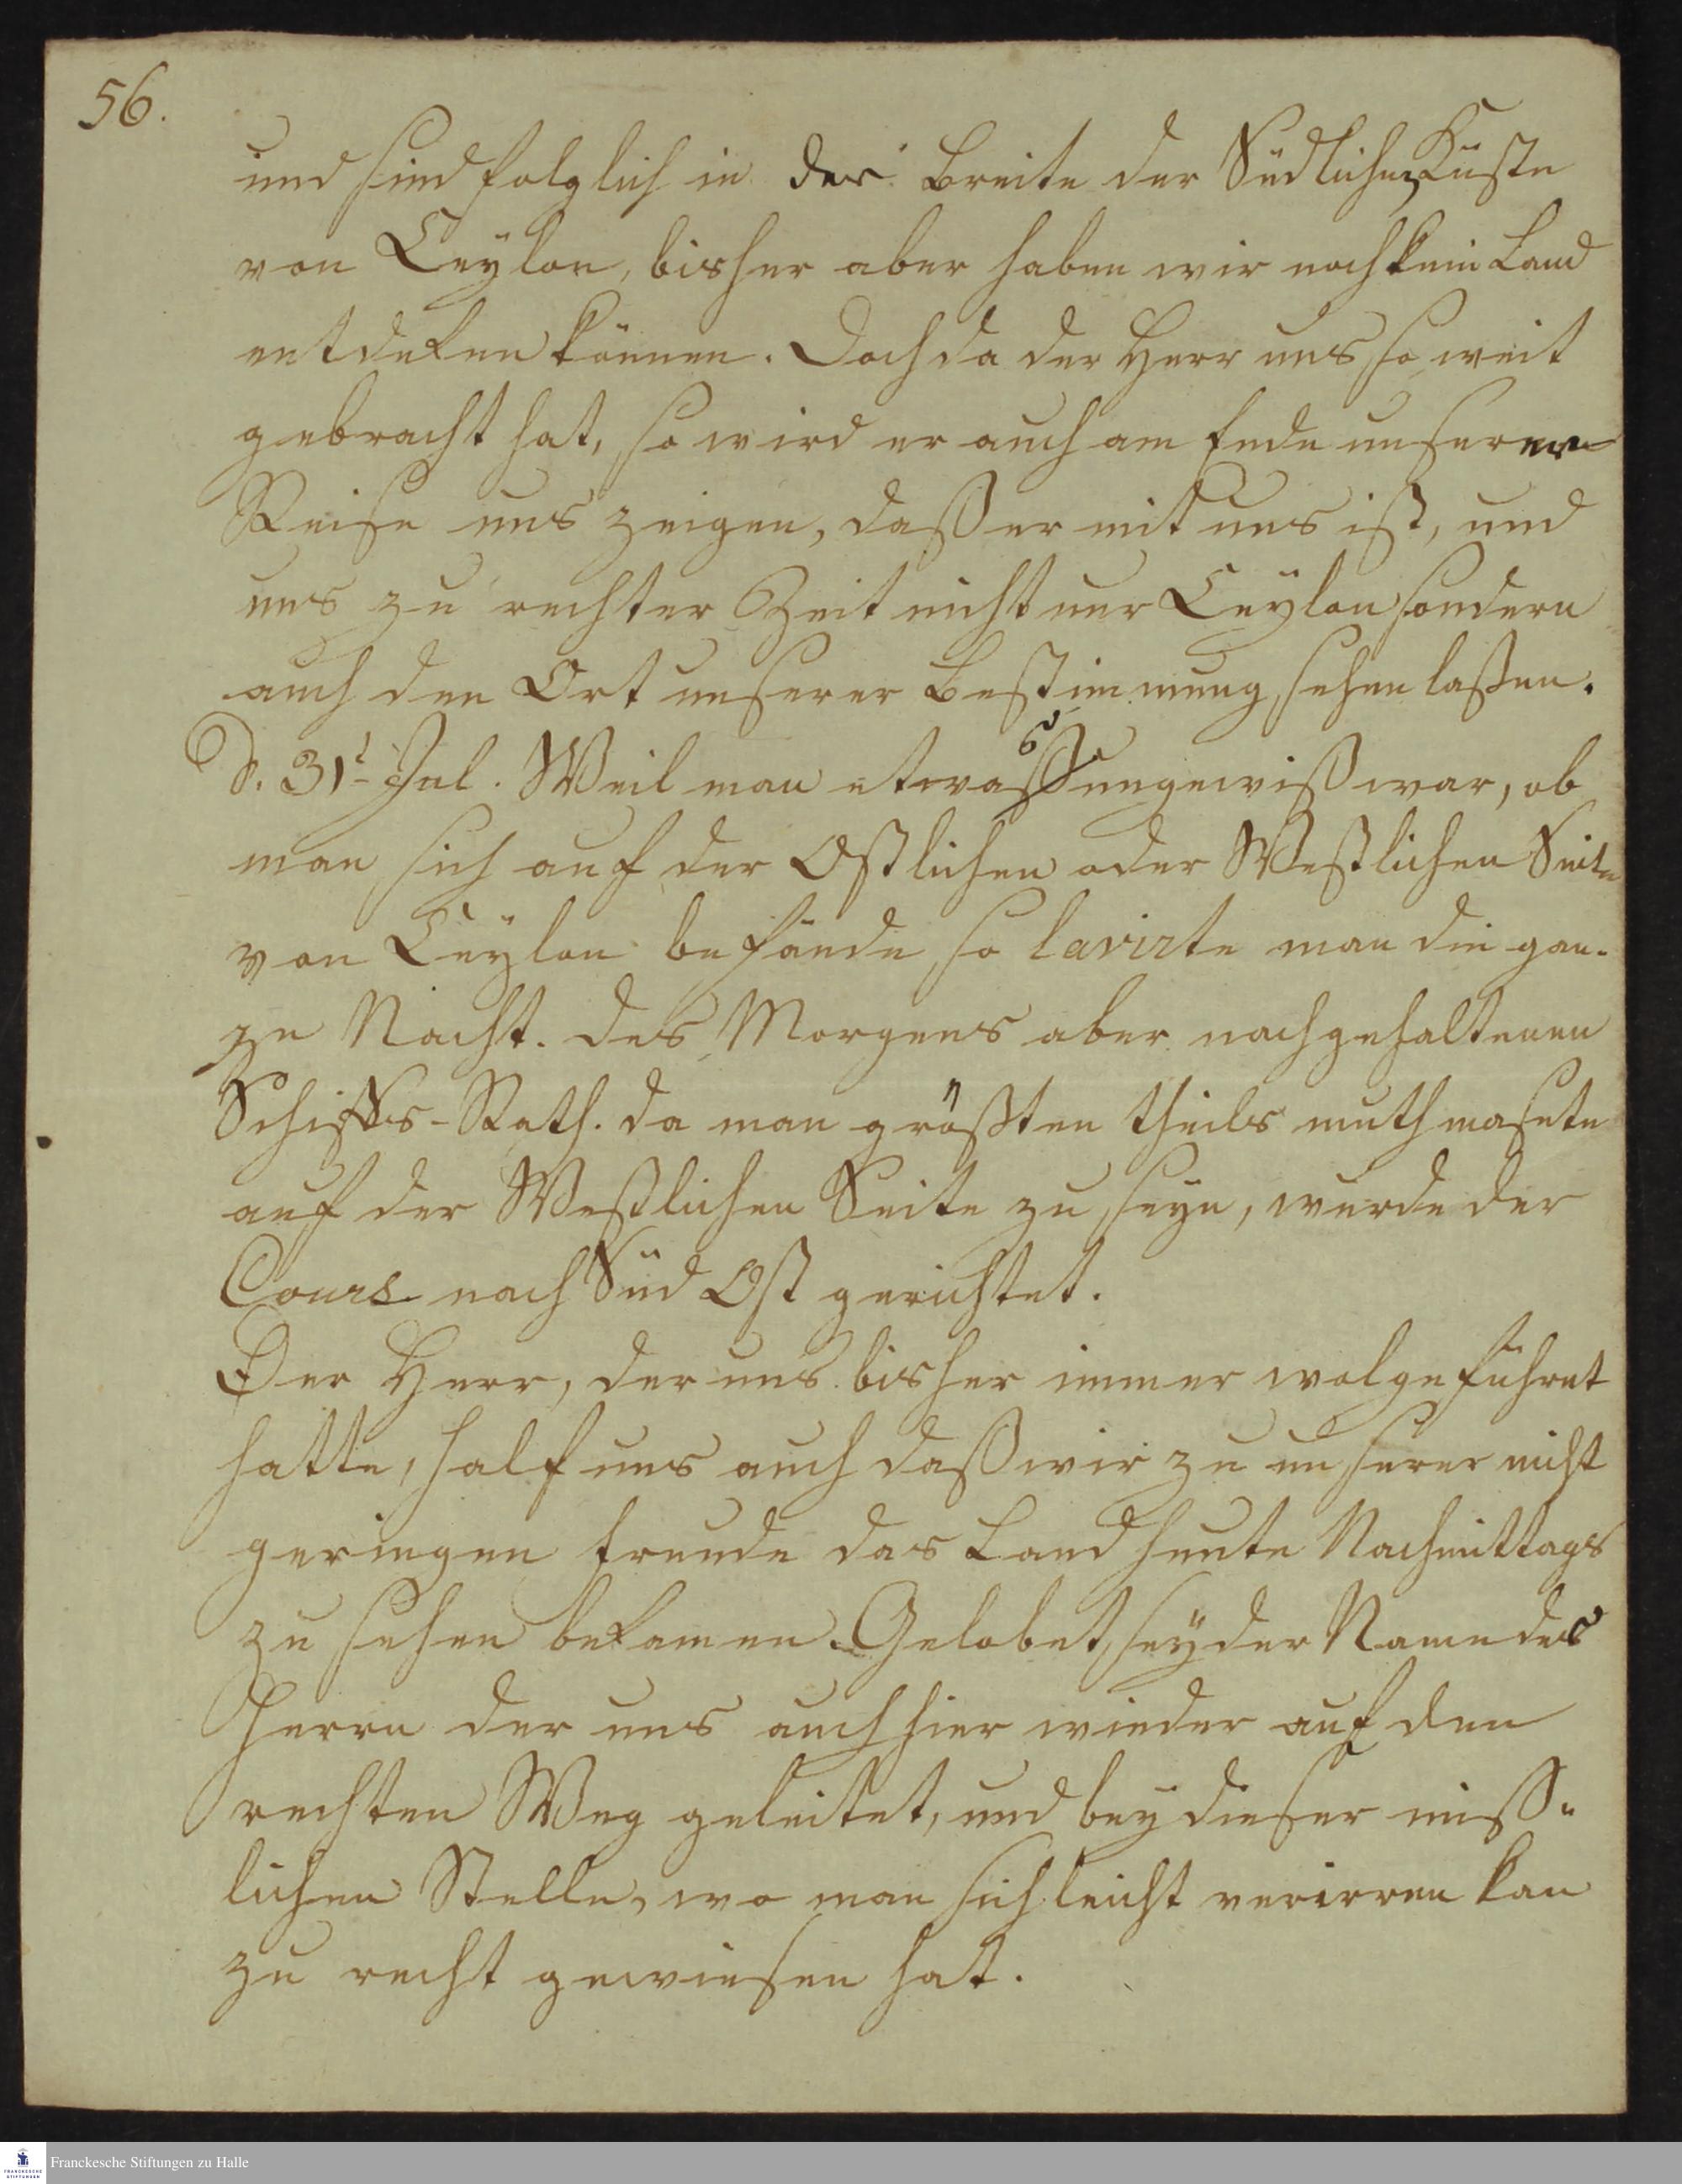 56.
und sind folglich in der Breite der Südlichen Küste
von Ceÿlon, bisher aber haben wir noch kein Land
entdeken können. Doch da der Herr uns so weit
gebracht hat, so wird er auch am Ende unserer
Reise uns zeigen, daß er mit uns ist, und
uns zu rechter Zeit nicht nur Ceÿlon sondern
auch den Ort unserer Bestimmung sehen laßen.
D. 31t Jul. Weil man etwas ungewiß war, ob
man sich auf der Ostlichen oder Westlichen Seite
von Ceÿlon befände, so lavirte man die gan-
ze Nacht. Des Morgens aber nach gehaltenen
Schiffs-Rath. da man größten theils muthmasete
auf der Westlichen Seite zu seyn, wurde der
Cours nach Süd Ost gerichtet.
Der Herr, der uns bisher immer wol geführet
hatte, half uns auch daß wir zu unserer nicht
geringen Freude das Land heute Nachmittags
zu sehen bekamen. Gelobet seÿ der Name des
Herrn der uns auch hier wieder auf den
rechten Weg geleitet, und beÿ dieser miss-
lichen Stelle, wo man sich leicht verirren kan
zu recht gewiesen hat.
FRANCKESCHE STIFTUNGEN
Franckesche Stiftungen zu Halle